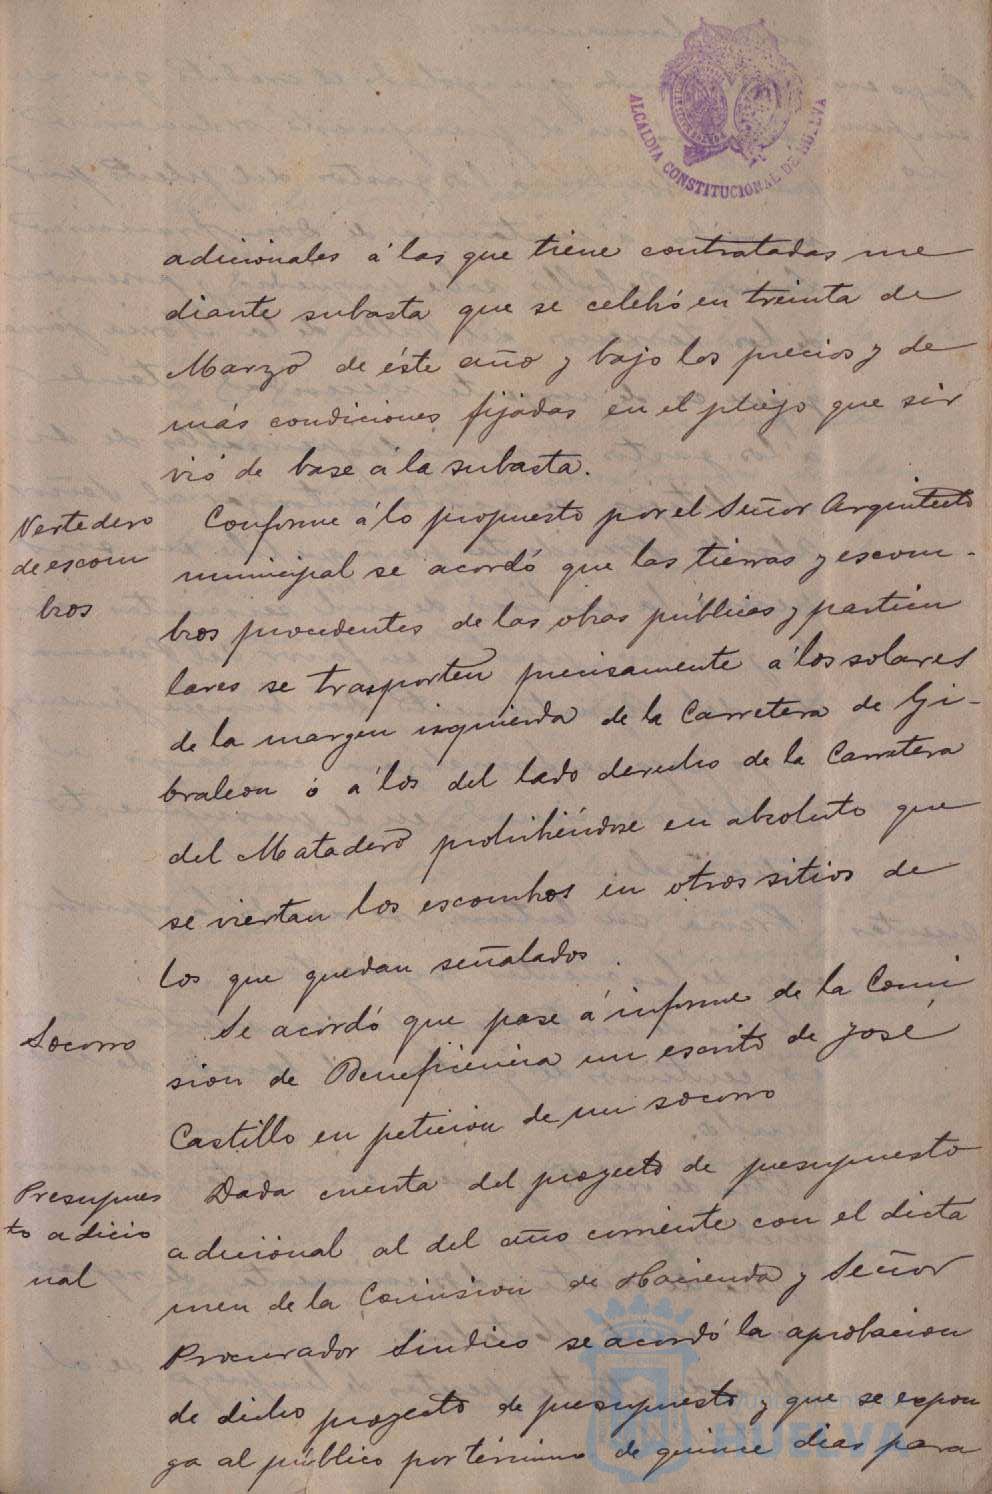 ALCALDIA CONSTITUCIONAL DE HUELVA
adicionales á las que tiene contratadas me
diante subasta que se celebró en treinta de
Marzo de éste año y bajo los precios y de
más condiciones fijadas en el pliego que sir
vió de base á la subasta.
Vertedero
de escom
bros
Conforme á lo propuesto por el Señor Arquitecto
municipal se acordó que las tierras y escom-
bros procedentes de las obras públicas y particu
lares se trasporten precisamente á los solares
de la margen izquierda de la Carretera de Gi-
braleon ó á los del lado derecho de la Carretera
del Matadero prohibiéndose en absoluto que
se viertan los escombros en otros sitios de
los que quedan señalados.
Socorro
Se acordó que pase á informe de la Comi
sion de Beneficencia un escrito de José
Castillo en peticion de un socorro
Presupues
to adicio
nal
Dada cuenta del proyecto de presupuesto
adicional al del año corriente con el dicta
men de la Comision de Hacienda y Señor
Procurador Sindico se acordó la aprobacion
de dicho proyecto de presupuesto y que se expon
ga al público por término de quince dias para
HUELVA